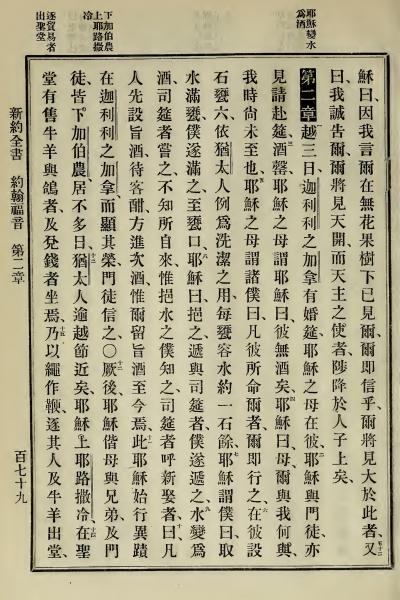 耶穌變水
爲酒
下加伯農
上耶路撒
冷
逐貿易者
出聖堂
穌曰因我言爾在無花果樹下已見爾爾即信乎爾將見大於此者、又
曰我誠告爾爾將見天開而天主之使者陟降於人子上矣、
第二章越三日迦利利之加拿有婚筵耶穌之母在彼耶穌與門徒亦
見請赴筵酒罄耶穌之母謂耶穌曰彼無酒矣耶穌曰母爾與我何與
我時尚未至也耶穌之母謂諸僕曰凡彼所命爾者爾即行之在彼設
石甕六依猶太人例爲洗潔之用每甕容水約一石餘耶穌謂僕曰取
水滿甕僕遂滿之至甕口耶穌曰挹之遞與司筵者僕遂遞之水變爲
酒司筵者嘗之不知所自來惟挹水之僕知之司筵者呼新娶者曰凡
人先設旨酒待客酣方進次酒惟爾留旨酒至今焉此耶穌始行異蹟
在迦利利之加拿而顯其榮門徒信之〇厥後耶穌偕母與兄弟及門
徒皆下加伯農居不多日猶太人逾越節近矣耶穌上耶路撒冷在聖
堂有售牛羊與鴿者及兌錢者坐焉乃以繩作鞭逐其人及牛羊出堂、
新約全書 約翰福音 第二章 百七十九